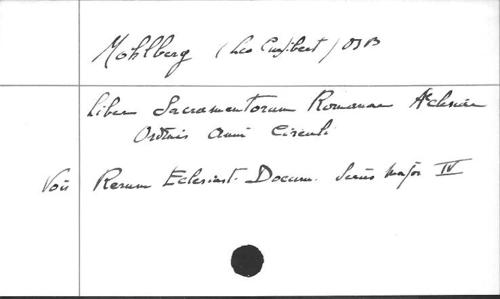 Mohlberg (Leo Cunibert) OSB
Liber Sacramentorum Romanae Aeclesiae
Ordinis Anni Circuli
Voir Rerum Eclesiast. Docum. Series Major IV